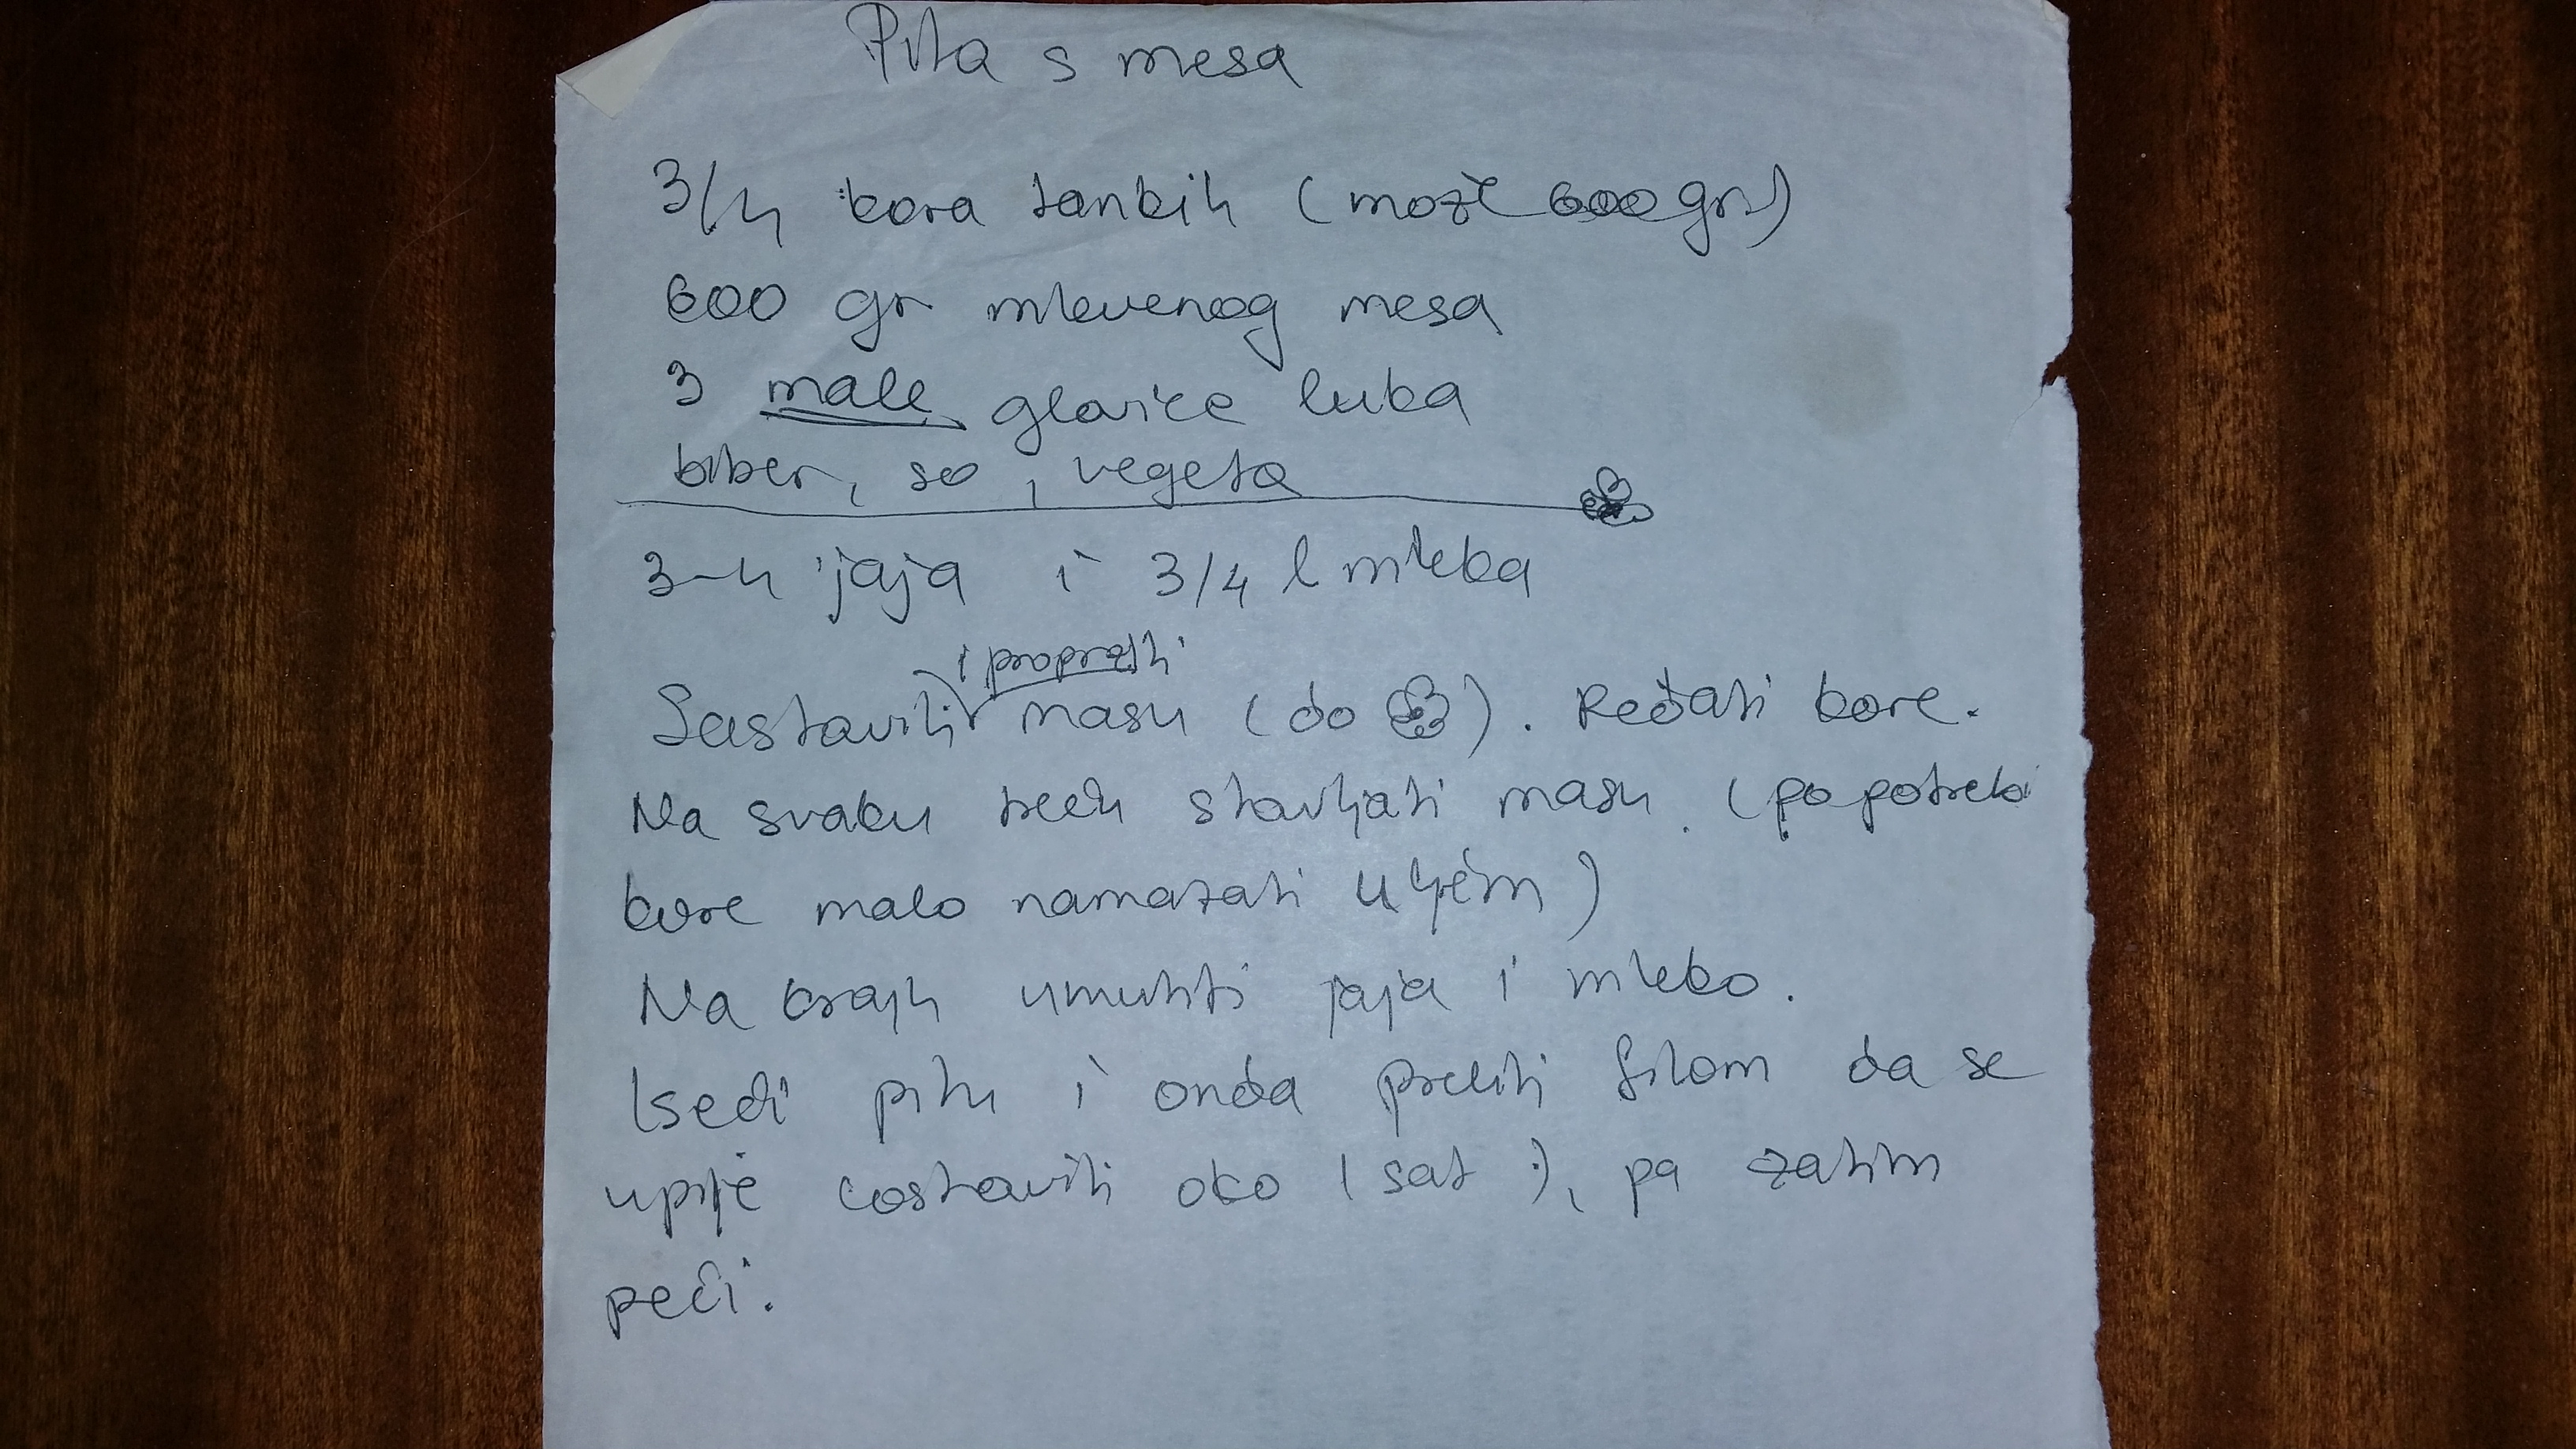 Pita s mesa
3/4 kora tankih (može 600 gr.)
600 gr mlevenog mesa
3 male glavice luka
biber, so, vegeta
3-4 jaja i 3/4 l mleka
i propržiti
Sastaviti masu (do). Ređati kore.
Na svaku treću stavljati masu. (po potrebi
kore malo namazati uljem)
Na kraju umutiti jaja i mleko.
Iseći pitu i onda preliti filom da se
upije (ostaviti oko 1 sat :), pa zatim
peći.